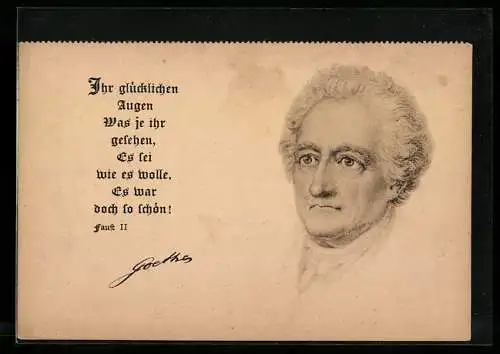 Ihr glücklichen
Augen
Was je ihr
gesehen,
Es sei
wie es wolle,
Es war
doch so schön!
Faust II
Goethe